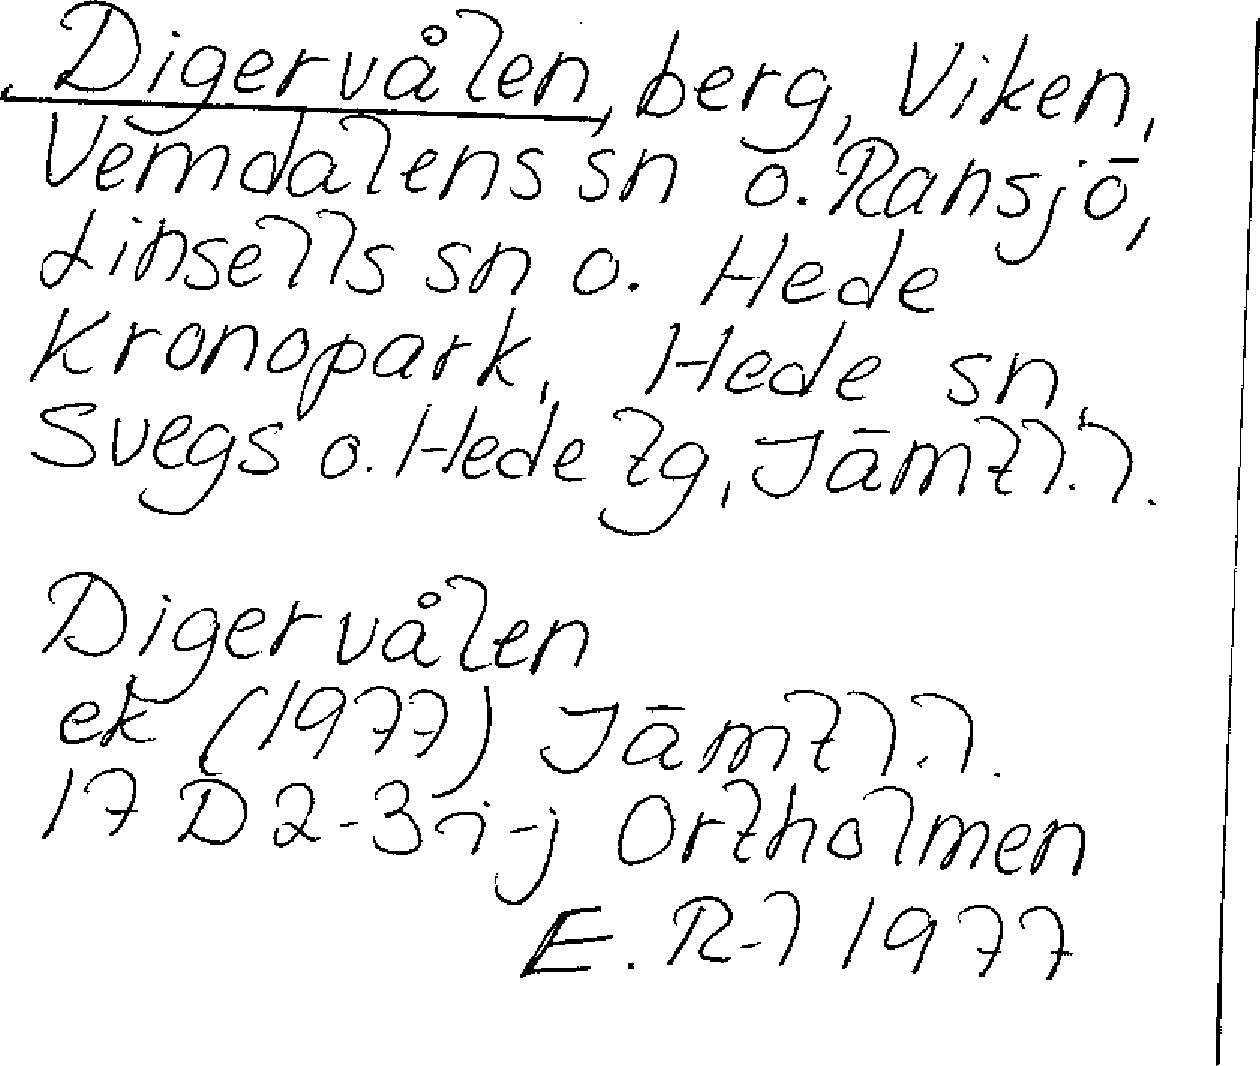 Digervålen, berg, Viken,
Vemdalens sn o. Ransjö,
Linsells sn o. Hede
Kronopark, Hede sn,
Svegs o. Hede tg, Jämtl.l.
Digervålen
ek (1977) Jämtl.l.
17 D 2-3 i-j Ortholmen
E. R-l 1977